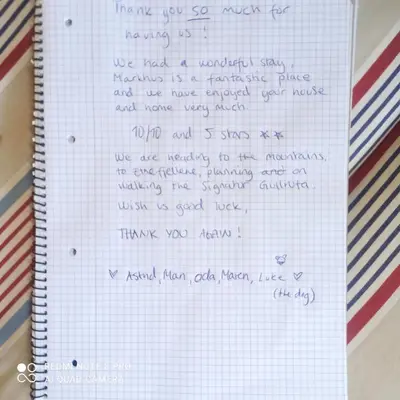 Thank you SO much for
having us!
We had a wonderful stay,
Markhus is a fantastic place
and we have enjoyed your house
and home very much.
10/10 and 5 stars **
We are heading to the mountains,
to planning on
walking the
Wish us good luck,
THANK YOU AGAIN!
♡ Astrid, Mari, Oda, Maren, Luke ♡
(the dog)
REDMI NOTE 8 PRO
AI QUAD CAMERA